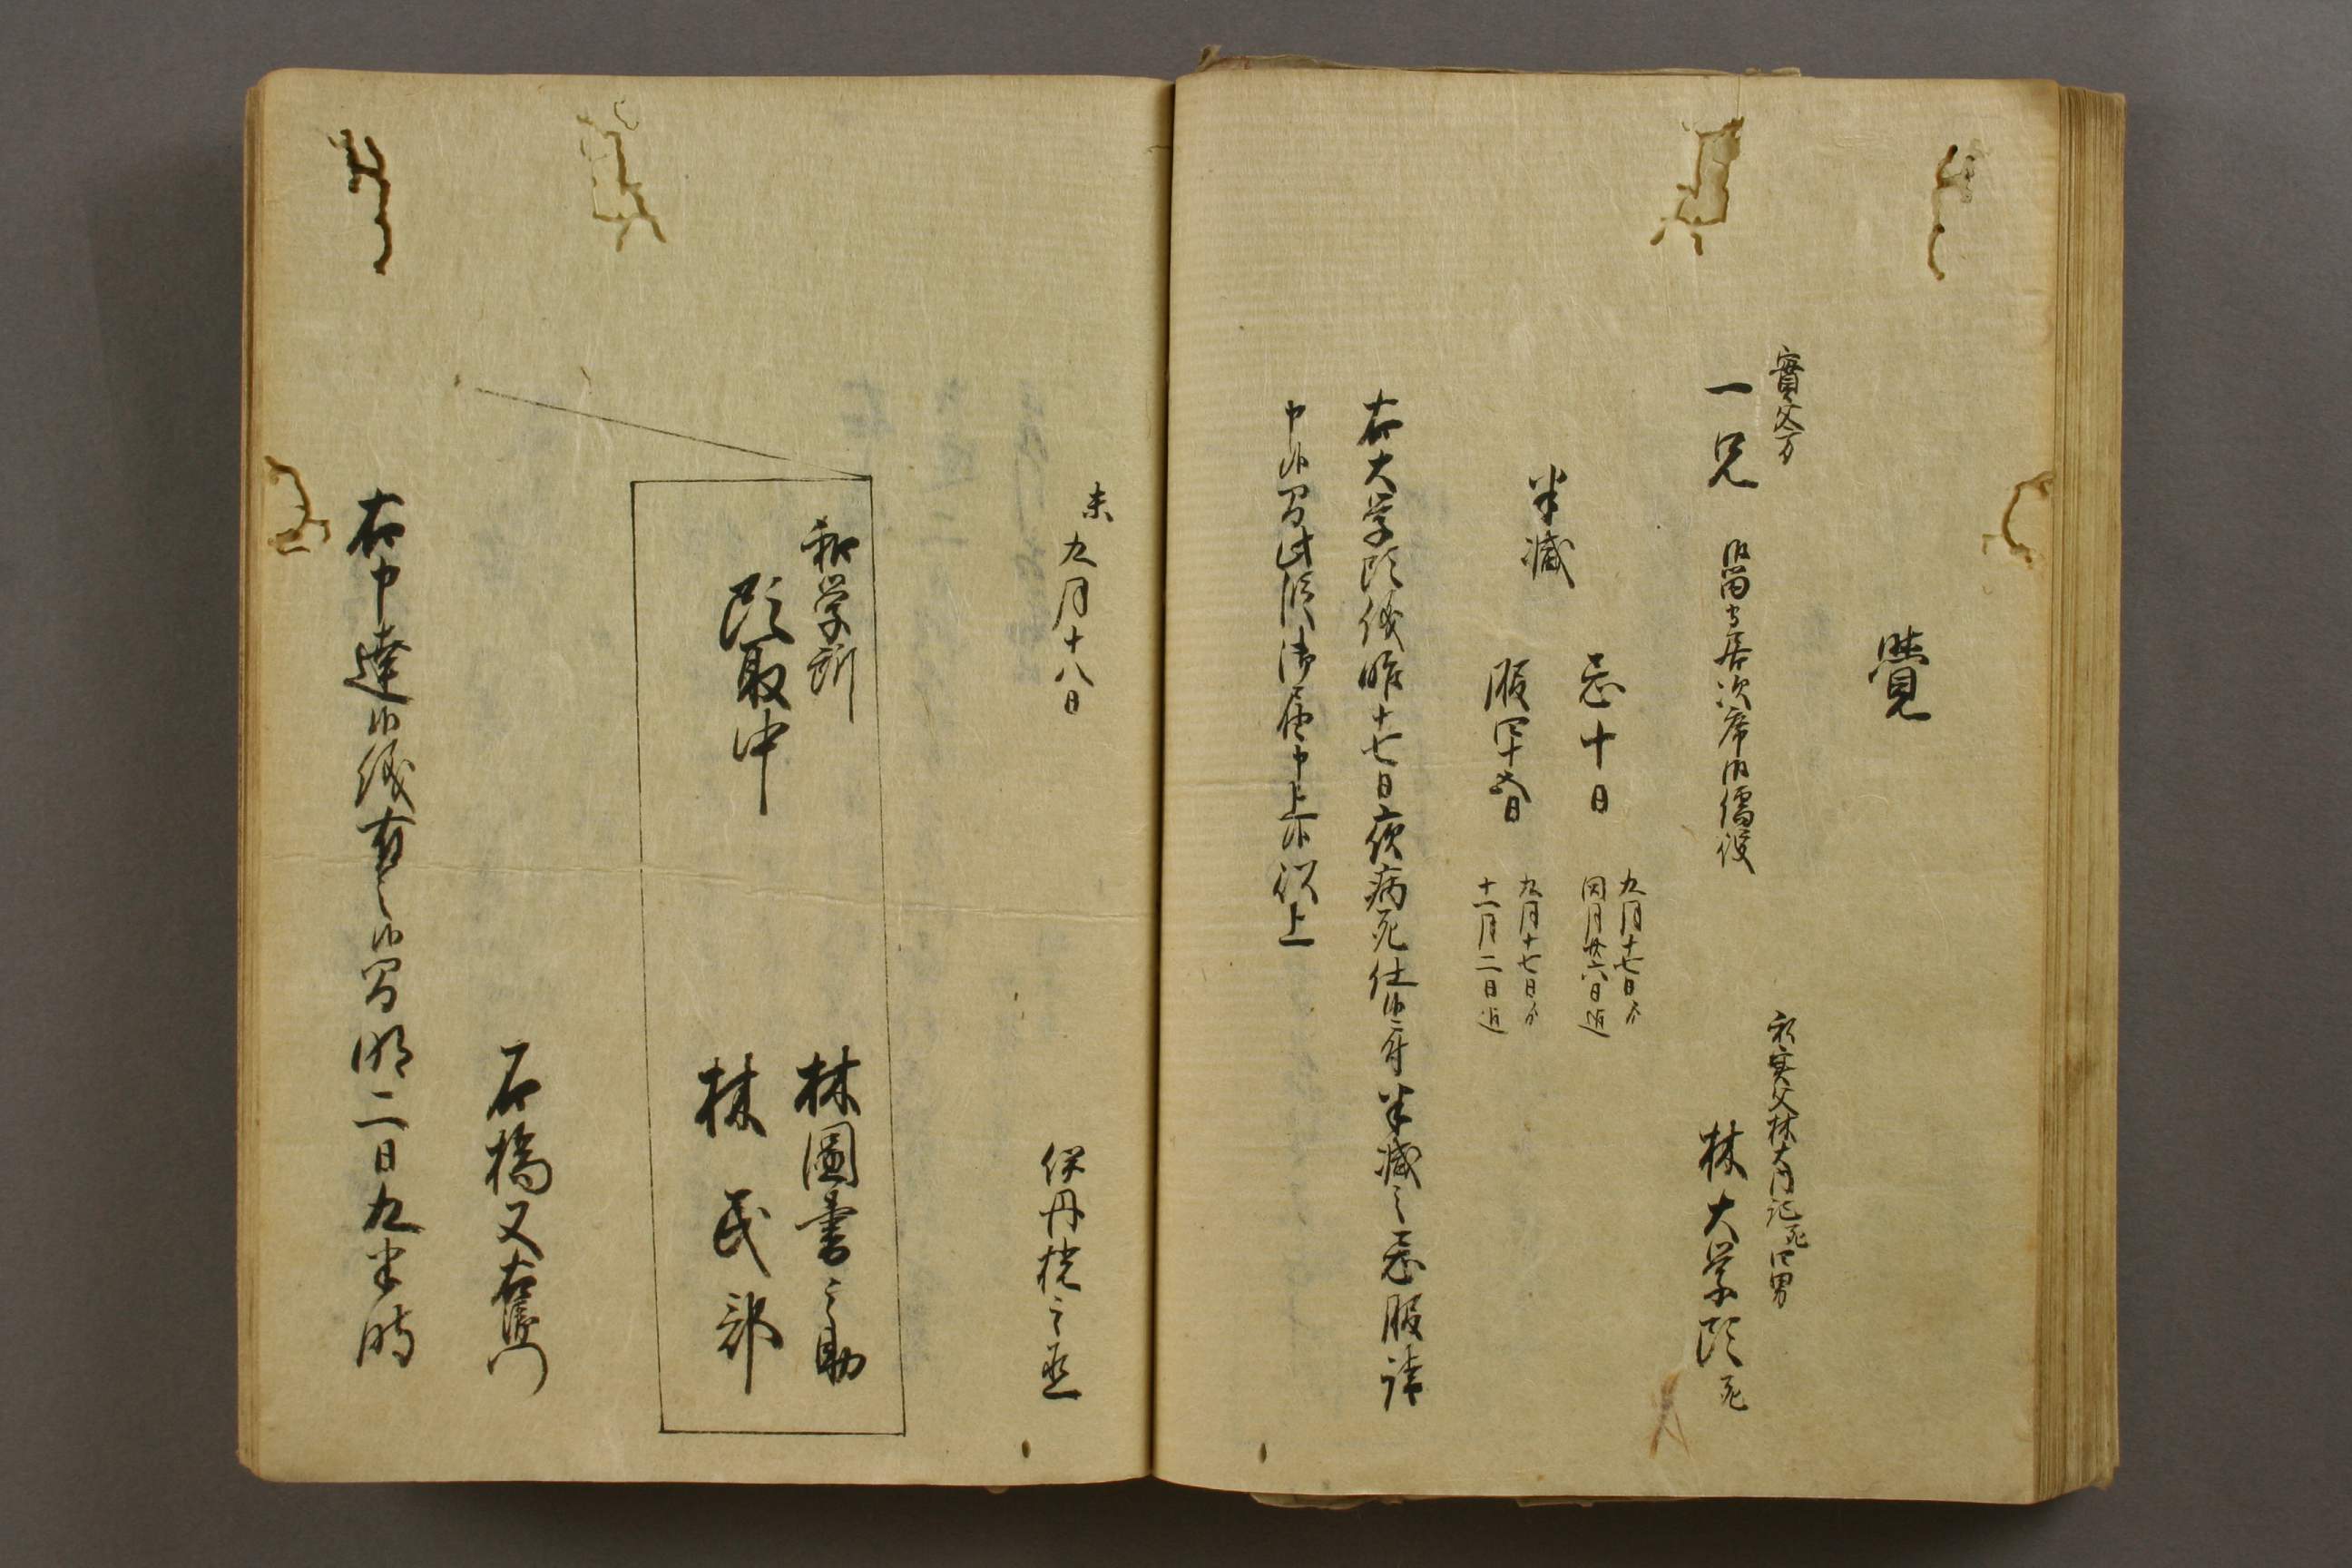 覺
實父方
一兄 御留守居次席御儒役
私実父林大内記死四男
林大学頭死
半減
忌十日
九月十七日ゟ
同月廿六日迄
服四十五日
九月十七日ゟ
十一月二日迄
右大学頭儀昨十七日夜病死仕候ニ付半減之忌服請
申候間此段御届申上候以上
未九月十八日
伊丹 之丞
和学所
頭取中
林圖書之助
林民部
石橋又右衛門
右申達候儀有之候間明二日九半時